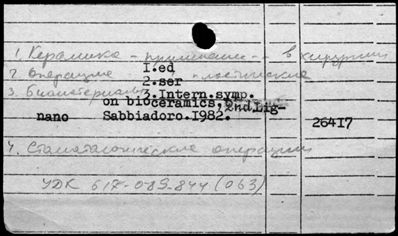 1. Керамика - применение - в хирургии
1.ed
2. Операции пластические
2.ser
3. Биоматериалы
3.Intern.symp.
on bioceramics,
2nd.Lig-
nano Sabbiadoro.1982. 26417
4. Стоматологические операции
УДК 617-089-844 (063)